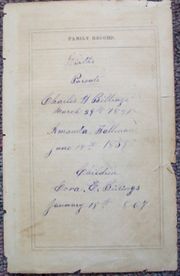 FAMILY RECORD.
Births
Parents
Charles H Billings
March 29th
Amanda
June 14th
Children
Cora. E. Billings
January 18th